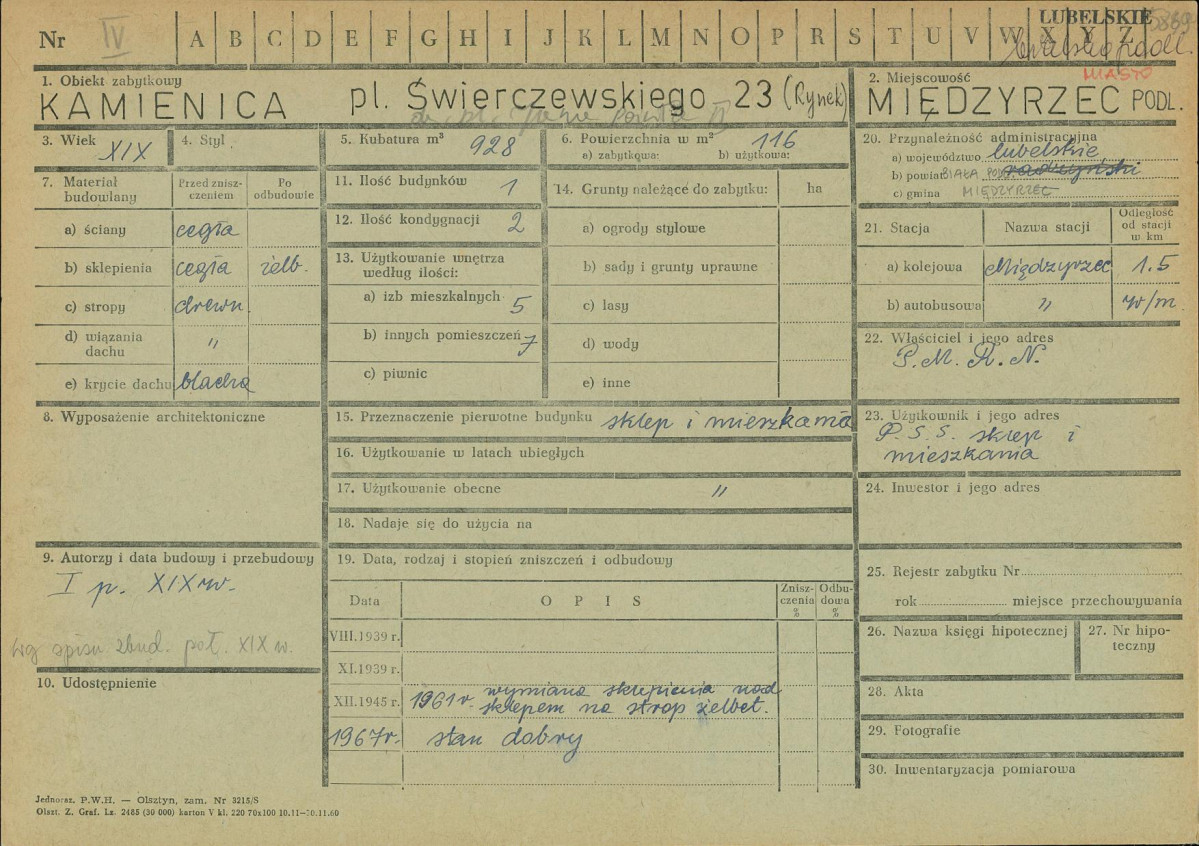 Nr IV A B C D E F G H I J K L M N O P R S T U V W X Y Z
LUBELSKIE
MIASTO
1. Obiekt zabytkowy
KAMIENICA pl. Świerczewskiego 23 (Rynek)
ob. pl. Jana Pawła II
2. Miejscowość
MIĘDZYRZEC PODL.
3. Wiek XIX
4. Styl
5. Kubatura m³ 928
6. Powierzchnia w m² 116
a) zabytkowa: b) użytkowa:
20. Przynależność administracyjna
a) województwo lubelskie
b) powiat BIAŁA POD. radzyński
c) gmina MIĘDZYRZEC
7. Materiał budowlany
Przed znisz-
czeniem
Po
odbudowie
a) ściany cegła
b) sklepienia cegła żelb.
c) stropy drewn.
d) wiązania
dachu "
e) krycie dachu blacha
11. Ilość budynków 1
12. Ilość kondygnacji 2
13. Użytkowanie wnętrza
według ilości:
a) izb mieszkalnych 5
b) innych pomieszczeń 7
c) piwnic
14. Grunty należące do zabytku: ha
a) ogrody stylowe
b) sady i grunty uprawne
c) lasy
d) wody
e) inne
21. Stacja Nazwa stacji
Odległość
od stacji
w km
a) kolejowa Międzyrzec 1.5
b) autobusowa " w/m
22. Właściciel i jego adres
P. M. R. N.
8. Wyposażenie architektoniczne
15. Przeznaczenie pierwotne budynku sklep i mieszkania
16. Użytkowanie w latach ubiegłych
17. Użytkowanie obecne "
18. Nadaje się do użycia na
23. Użytkownik i jego adres
P.S.S. sklep i
mieszkania
24. Inwestor i jego adres
9. Autorzy i data budowy i przebudowy
I p. XIX w.
wg spisu zbud. poł. XIX w.
10. Udostępnienie
19. Data, rodzaj i stopień zniszczeń i odbudowy
Data OPIS
Znisz-
czenia
%
Odbu-
dowa
%
VIII.1939 r.
XI.1939 r.
XII.1945 r. 1961 r. wymiana sklepienia nad
sklepem na strop żelbet.
1967 r. stan dobry
25. Rejestr zabytku Nr
rok miejsce przechowywania
26. Nazwa księgi hipotecznej
27. Nr hipo-
teczny
28. Akta
29. Fotografie
30. Inwentaryzacja pomiarowa
Jednoraz. P.W.H. — Olsztyn, zam. Nr 3215/S
Olszt. Z. Graf. Lz. 2485 (30 000) karton V kl. 220 70x100 10.11—30.11.60